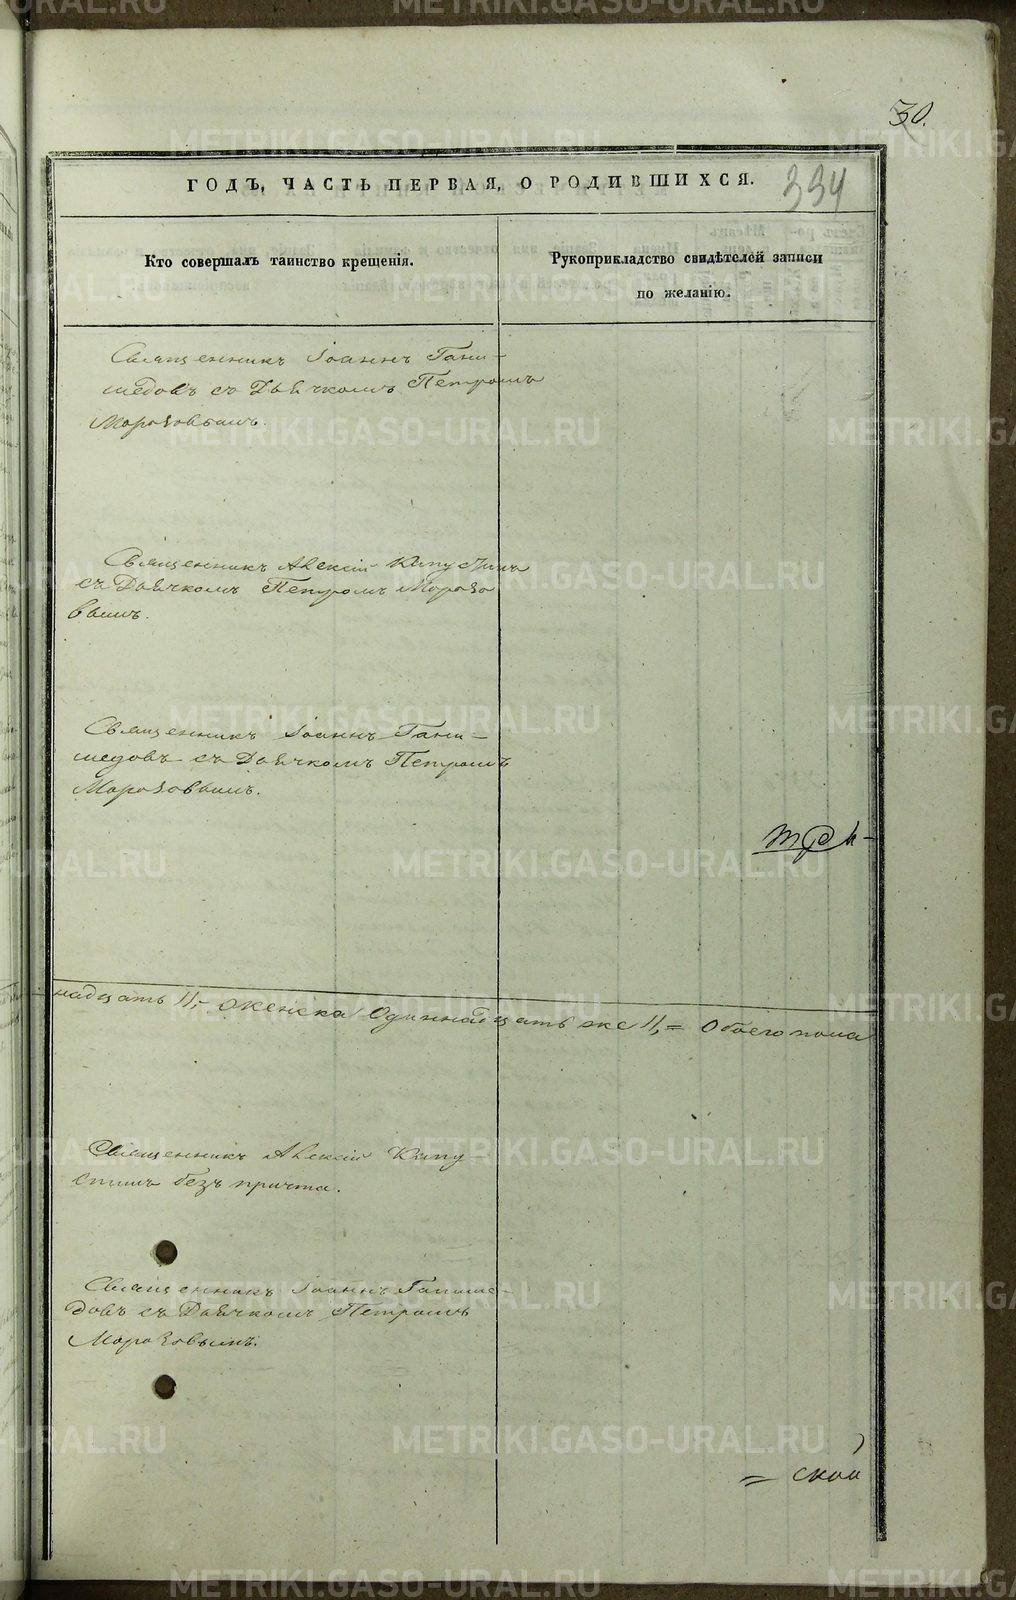 30.
ГОДЪ, ЧАСТЬ ПЕРВАЯ, О РОДИВШИХСЯ.
334
Кто совершалъ таинство крещенія.
Рукоприкладство свидѣтелей записи
по желанію.
Священникъ Іоаннъ Гани-
медовъ съ Дьячкомъ Петромъ
Морозовымъ.
Священникъ Алексій Капустинъ
съ Дьячкомъ Петромъ Морозо
вымъ.
Священникъ Іоаннъ Гани-
медовъ съ Дьячкомъ Петромъ
Морозовымъ.
надцать 11,- Женска Одиннадцать же 11,= Обоего пола
Священникъ Алексій Капу-
стинъ безъ причта.
Священникъ Іоаннъ Ганиме-
довъ съ Дьячкомъ Петромъ
Морозовымъ.
= ской
METRIKI.GASO-URAL.RU